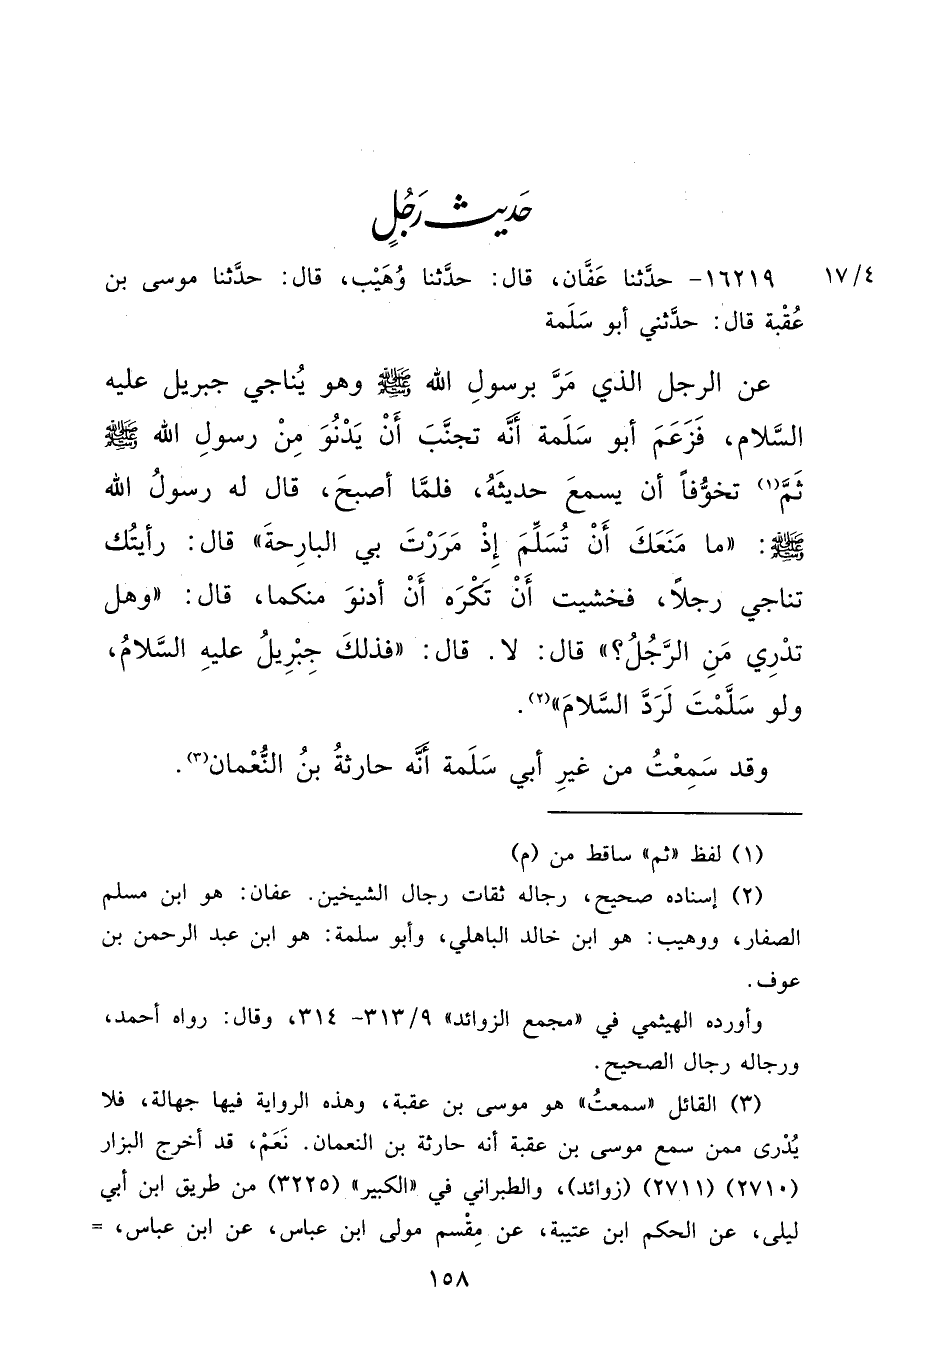 حَدِيث رَجُلٍ
١٧/٤ ١٦٢١٩- حدَّثنا عَفَّان، قال: حدَّثنا وُهَيْب، قال: حدَّثنا موسى بن
عُقْبة قال: حدَّثني أبو سَلَمة
عن الرجل الذي مَرَّ برسولِ الله ﷺ وهو يُناجي جبريل عليه
السَّلام، فَزَعَمَ أبو سَلَمة أنَّه تجنَّبَ أَنْ يَدْنُوَ مِنْ رسولِ الله ﷺ
ثَمَّ(١) تخوُّفاً أن يسمعَ حديثَهُ، فلمَّا أصبحَ، قال له رسولُ الله
ﷺ: «ما مَنَعَكَ أَنْ تُسَلِّمَ إِذْ مَرَرْتَ بي البارِحةَ» قال: رأيتُك
تناجي رجلاً، فخشيت أَنْ تَكْرَه أَنْ أدنوَ منكما، قال: «وهل
تدْرِي مَنِ الرَّجُلُ؟» قال: لا. قال: «فذلكَ جِبْرِيلُ عليهِ السَّلامُ،
ولو سَلَّمْتَ لَرَدَّ السَّلامَ»(٢).
وقد سَمِعْتُ من غيرِ أبي سَلَمة أنَّه حارثةُ بنُ النُّعْمان(٣).
(١) لفظ «ثم» ساقط من (م)
(٢) إسناده صحيح، رجاله ثقات رجال الشيخين. عفان: هو ابن مسلم
الصفار، ووهيب: هو ابن خالد الباهلي، وأبو سلمة: هو ابن عبد الرحمن بن
عوف.
وأورده الهيثمي في «مجمع الزوائد» ٣١٣/٩- ٣١٤، وقال: رواه أحمد،
ورجاله رجال الصحيح.
(٣) القائل «سمعتُ» هو موسى بن عقبة، وهذه الرواية فيها جهالة، فلا
يُدْرى ممن سمع موسى بن عقبة أنه حارثة بن النعمان. نَعَمْ، قد أخرج البزار
(٢٧١٠) (٢٧١١) (زوائد)، والطبراني في «الكبير» (٣٢٢٥) من طريق ابن أبي
ليلى، عن الحكم ابن عتيبة، عن مِقْسم مولى ابن عباس، عن ابن عباس، =
١٥٨